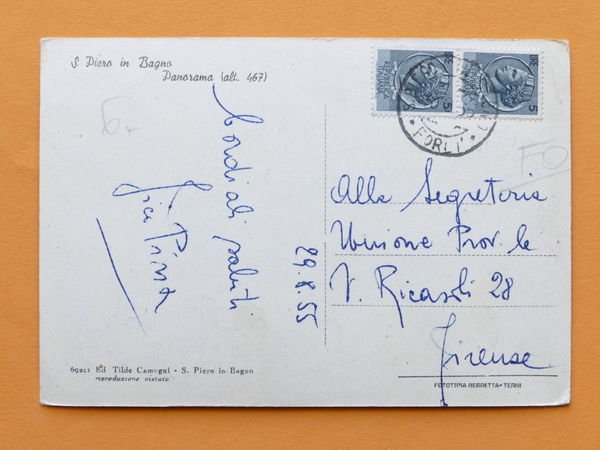 S. Piero in Bagno
Panorama (alt. 467)
Cordiali saluti
29.8.55
5
5
FORLI'
Alla Segreteria
Unione Prov.le
V. Ricasoli 28
Firenze
69221 Ed Tilde Camogni - S. Piero in Bagno
riproduzione vietata
FOTOTIPIA BERRETTA - TERNI